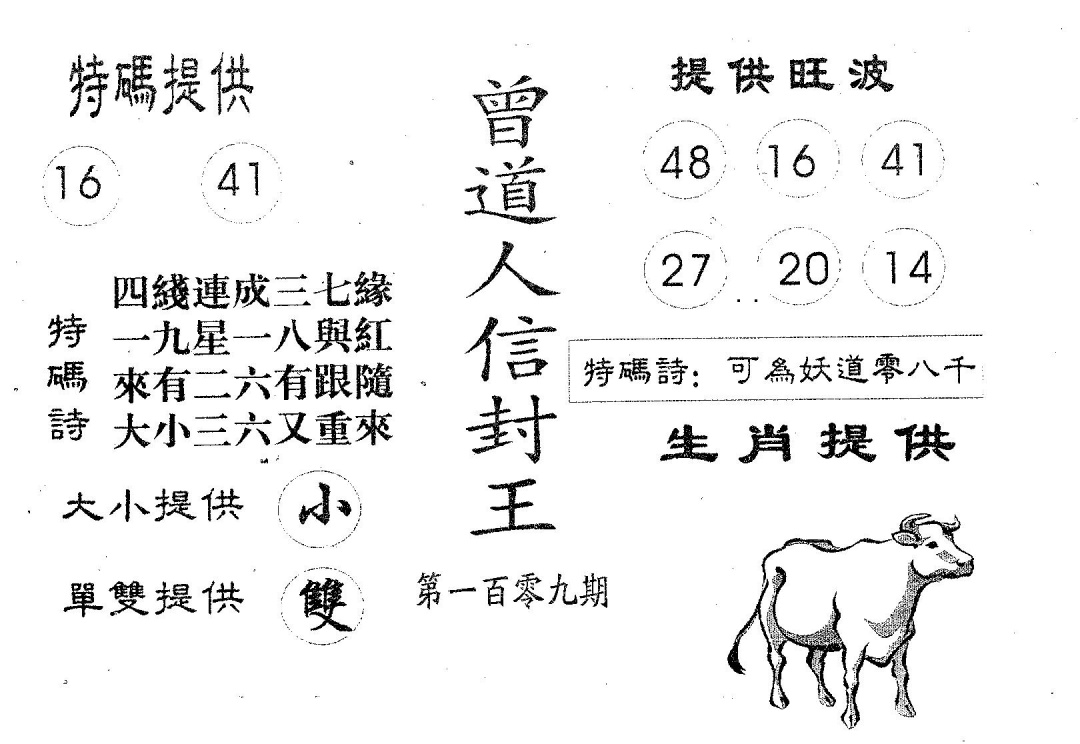 特碼提供
16 41
特碼詩
四綫連成三七緣
一九星一八與紅
來有二六有跟隨
大小三六又重來
大小提供 小
單雙提供 雙
曾道人信封王
第一百零九期
提供旺波
48 16 41
27 20 14
特碼詩：可為妖道零八千
生肖提供